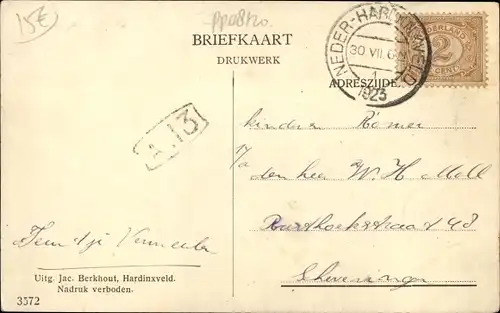 15€
pp08120
BRIEFKAART
DRUKWERK
NEDER-HARDINXVELD
30 VII 6
1
1923
NEDERLAND
2
CENT
ADRESZIJDE.
A.13
kinderen Römer
p/a den heer W. H. Moll
48
Scheveningen
Uitg. Jac. Berkhout, Hardinxveld.
Nadruk verboden.
3572